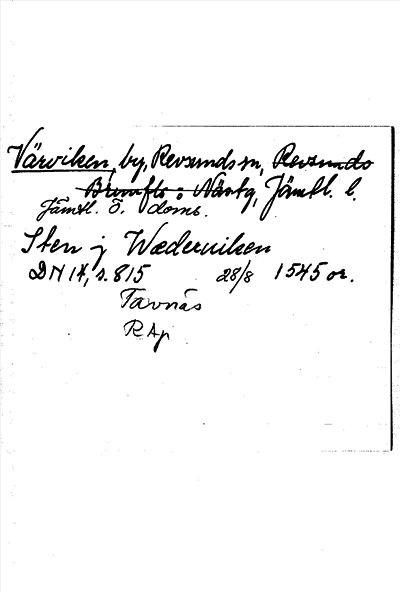 Värviken, by, Revsunds sn, Revsunds
Brunflo o Näs tg, Jämtl. l.
Jämtl. Ö. doms.
Sten j Wæderuiken
DN 14, s. 815 28/8 1545 or.
Tavnäs
RAp